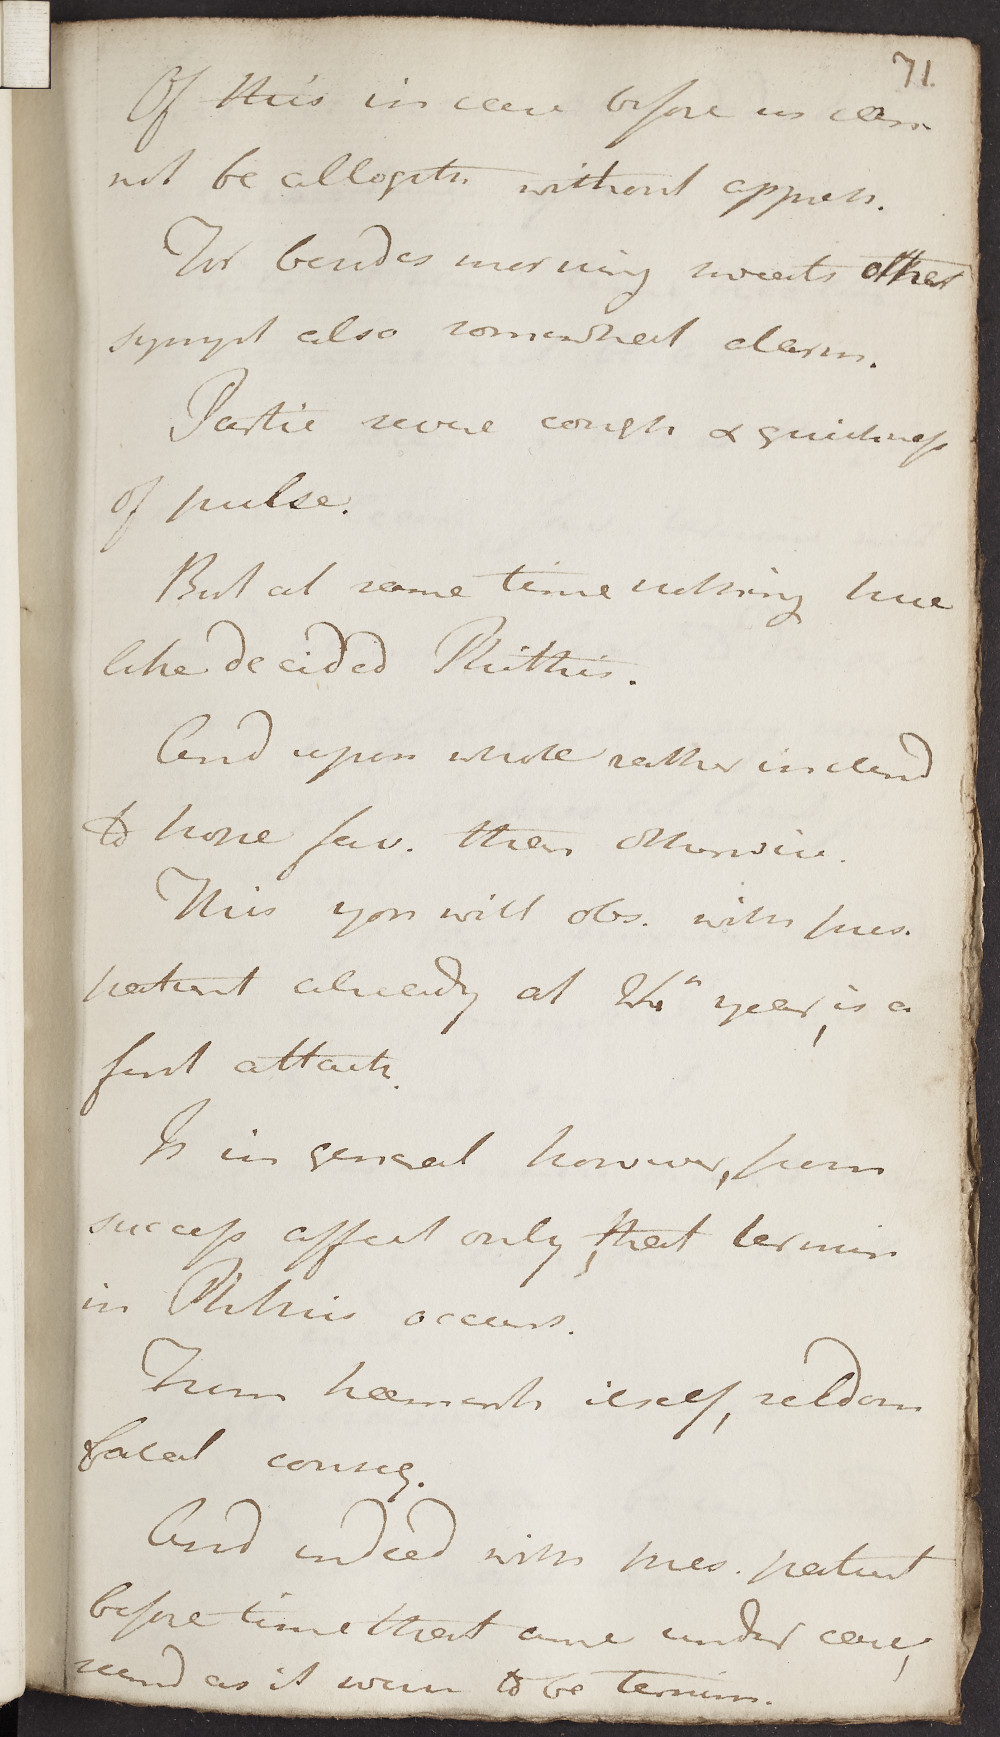 71.
Of this in case before us can
not be allogeth without appreh.
For besides morning sweats other
sympt also somewhat alarm.
Partic severe cough & quickness
of pulse.
But at same time nothing here
like decided Phthis.
And upon whole rather inclend
to hope fav. than otherwise.
This you will obs. with pres.
patient already at 24th year, is a
first attack.
Is in general however, from
success affect only, that termin
in Phthisis occurs.
From haemorrh itself, seldom
fatal conseq.
And indeed with pres. patient
before time that came under care,
seemd as it were to be termin.